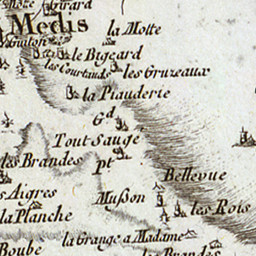 Girard
Medis
la Motte
Guiton
le Bigeard
les Courtauds
les Gruzeaux
la Piauderie
Gd
Tout Sauge
les Brandes
Pt
Bellevue
es Aigres
Musson
la Planche
les Rois
la Grange a Madame
Boube
les Brandes